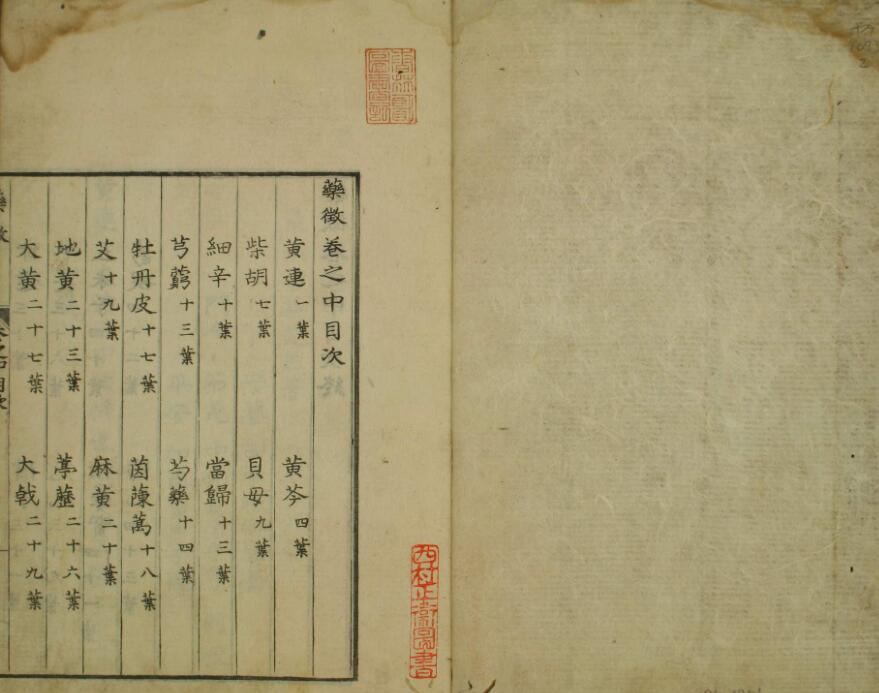 藥徴卷之中目次
黄連 一葉 黄芩 四葉
柴胡 七葉 貝母 九葉
細辛 十葉 當歸 十三葉
芎藭 十三葉 芍藥 十四葉
牡丹皮 十七葉 茵蔯蒿 十八葉
艾 十九葉 麻黄 二十葉
地黄 二十三葉 葶藶 二十六葉
大黄 二十七葉 大戟 二十九葉